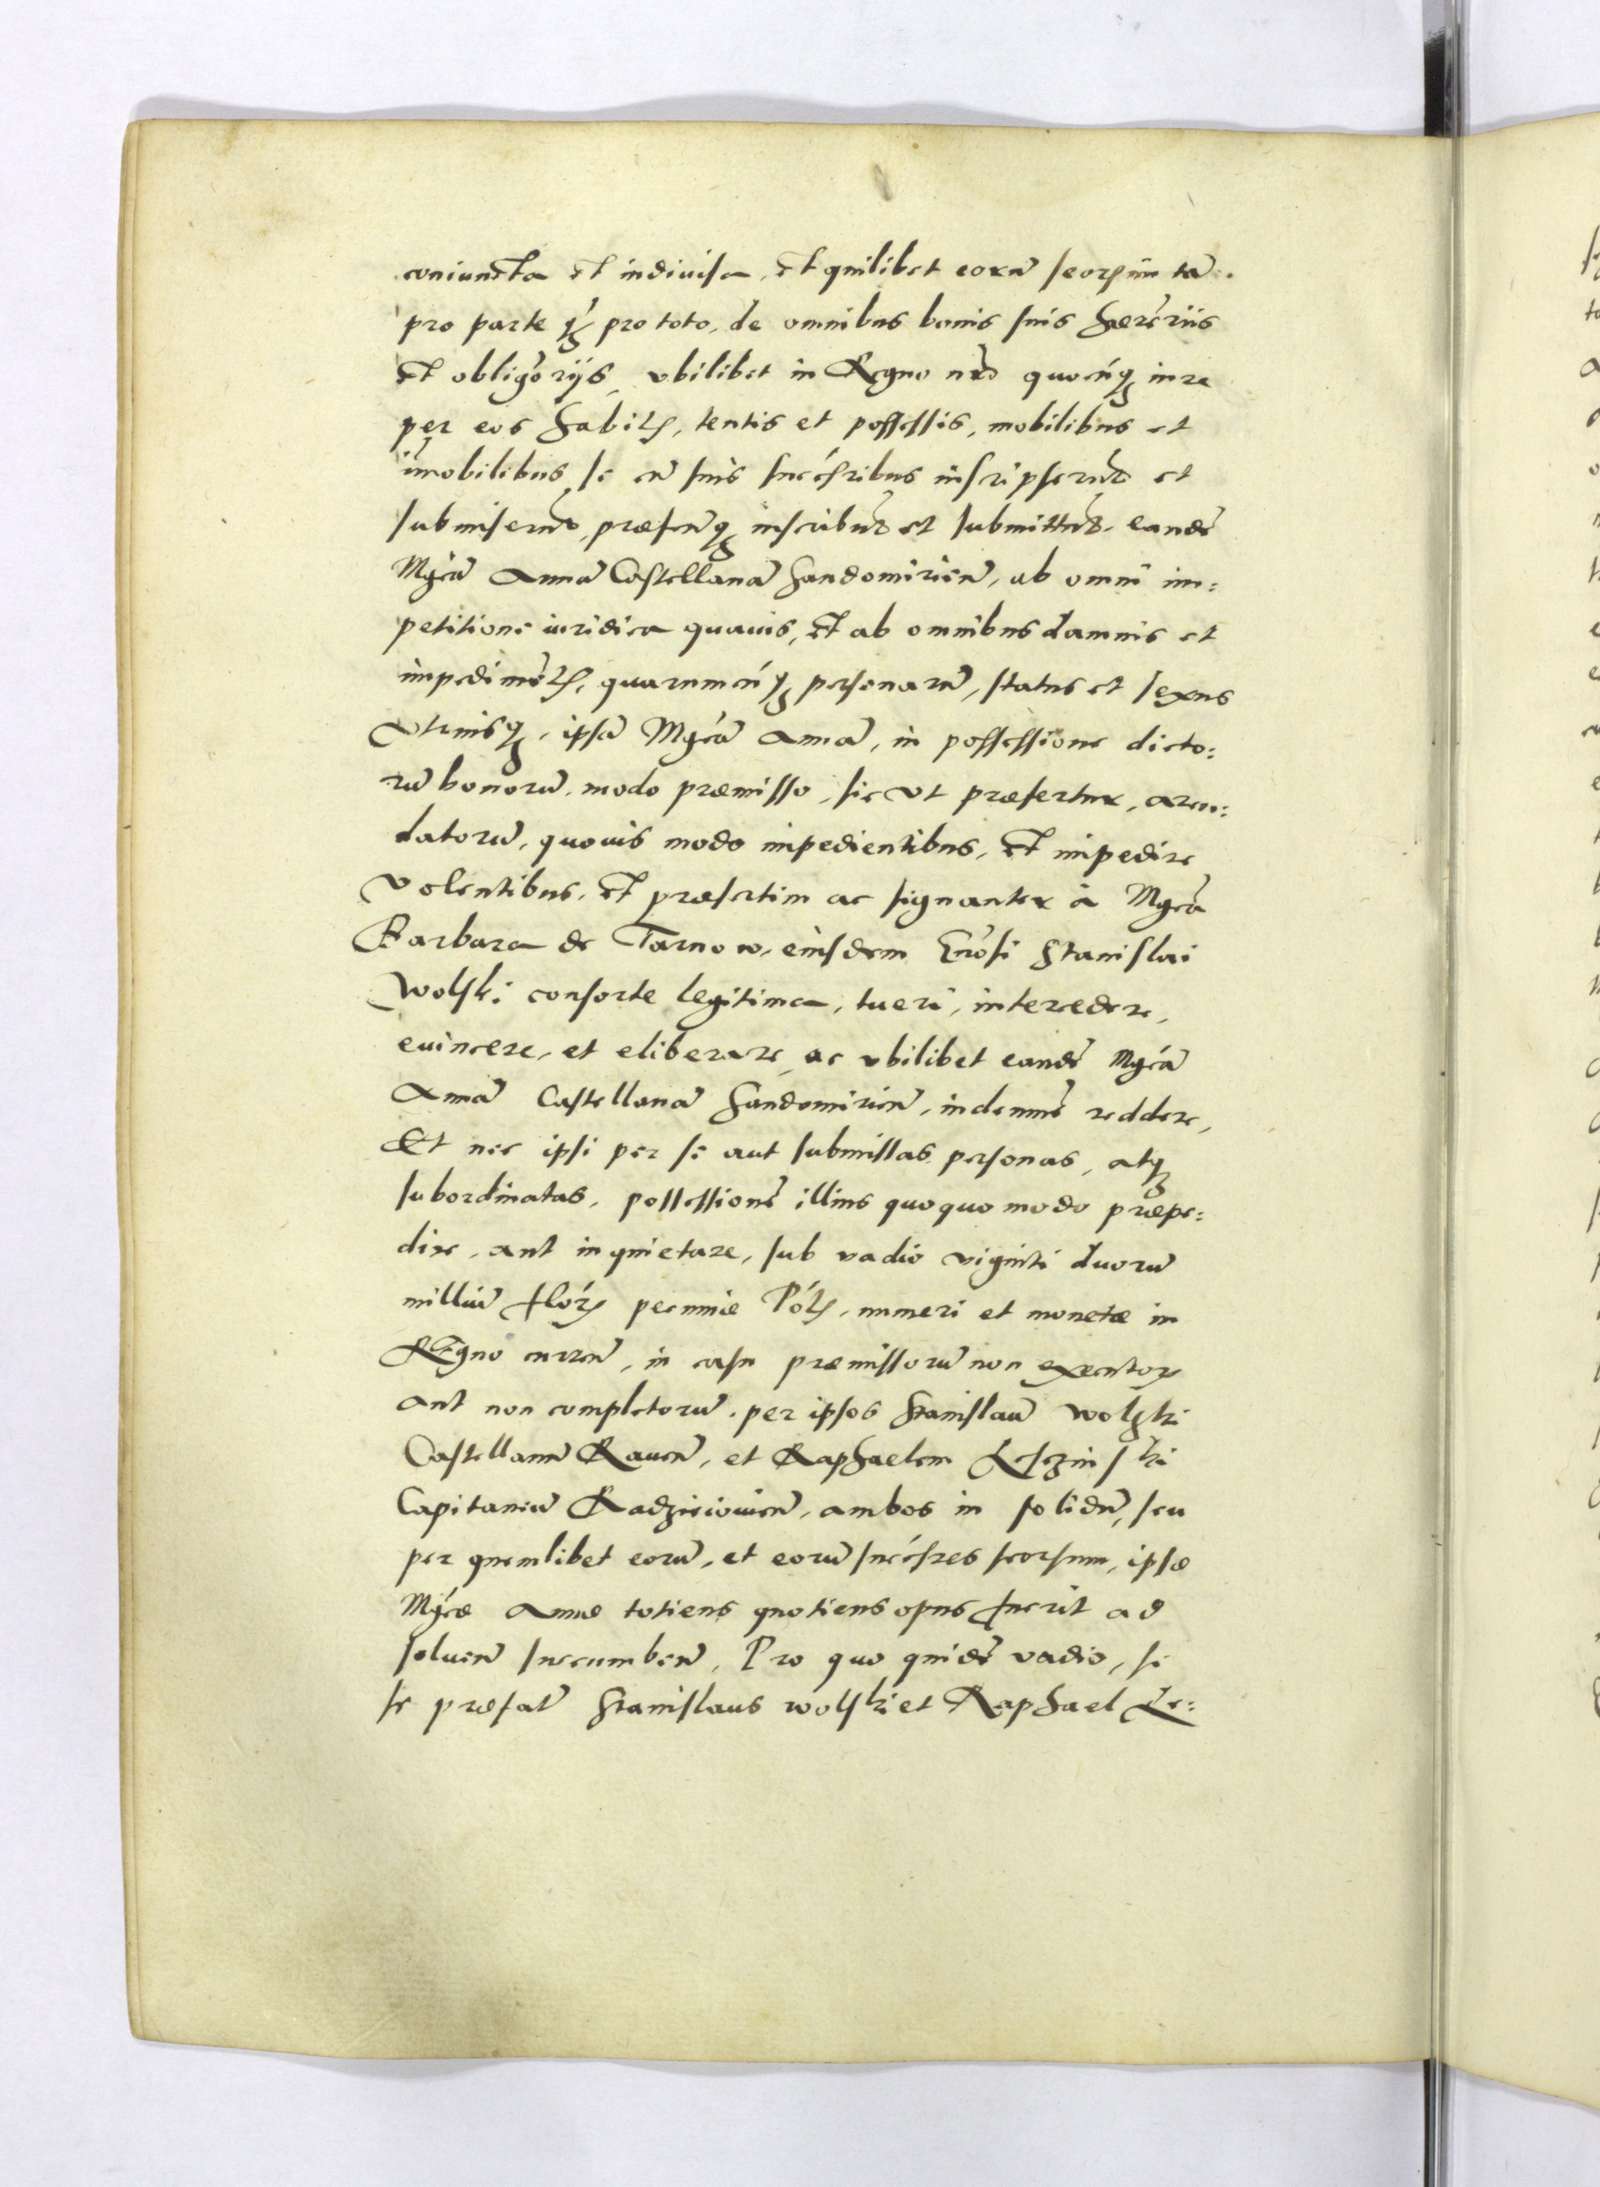 coniuncta et indiuisa, et quilibet eorũ seorsim tã
pro parte q̃ pro toto, de omnibus bonis suis hærẽriis
et obligõrijs, vbilibet in Regno nrõ quocũq; iure
per eos habitis, tentis et possessis, mobilibus et
im̃obilibus se cũ suis succéssribus inscripserũt et
submiserũt, præsenq; inscribũt et submittũt. eandẽ
Mgcã Annã Castellanã Sandomirien̄, ab omni im:
petitione iuridica quauis, et ab omnibus damnis et
impedimẽtis, quarumcũq; personarũ, status et sexus
vtriusq;, ipsã Mgcã Annã, in possessione dicto:
rũ bonorũ, modo præmisso, sic vt præfertur, aren:
datorũ, quouis modo impedientibus, et impedire
volentibus, et præsertim ac signanter à Mgcã
Barbara de Tarnow, eiusdem Gnõsi Stanislai
Wolski consorte legitima, tueri, intercedere,
euincere, et eliberare, ac vbilibet eandẽ Mgcã
Annã Castellanã Sandomirien̄, indemnẽ reddere,
Et nec ipsi per se aut submissas personas, atq;
subordinatas, possessionẽ illius quoquo modo præpe:
dire, aut inquietare, sub vadio viginti duorũ
milliũ flór; pecuniæ Pól;, numeri et monetæ in
Regno curren̄, in casu præmissorũ non executor;
aut non completorũ, per ipsos Stanislaũ Wolski
Castellanũ Rauen̄, et Raphaelem Lesczinski
Capitaneũ Radzieiouien̄, ambos in solidũ, seu
per quemlibet eorũ, et eorũ succéssres seorsum, ipsæ
Mgcæ Annæ totiens quotiens opus fuerit ad
soluen̄ succumben̄, Pro quo quidẽ vadio, si
se præfat̃ Stanislaus Wolski et Raphael Le: